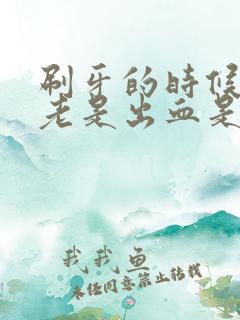 刷牙的时候
老是出血是
我我鱼
未经同意禁止转载